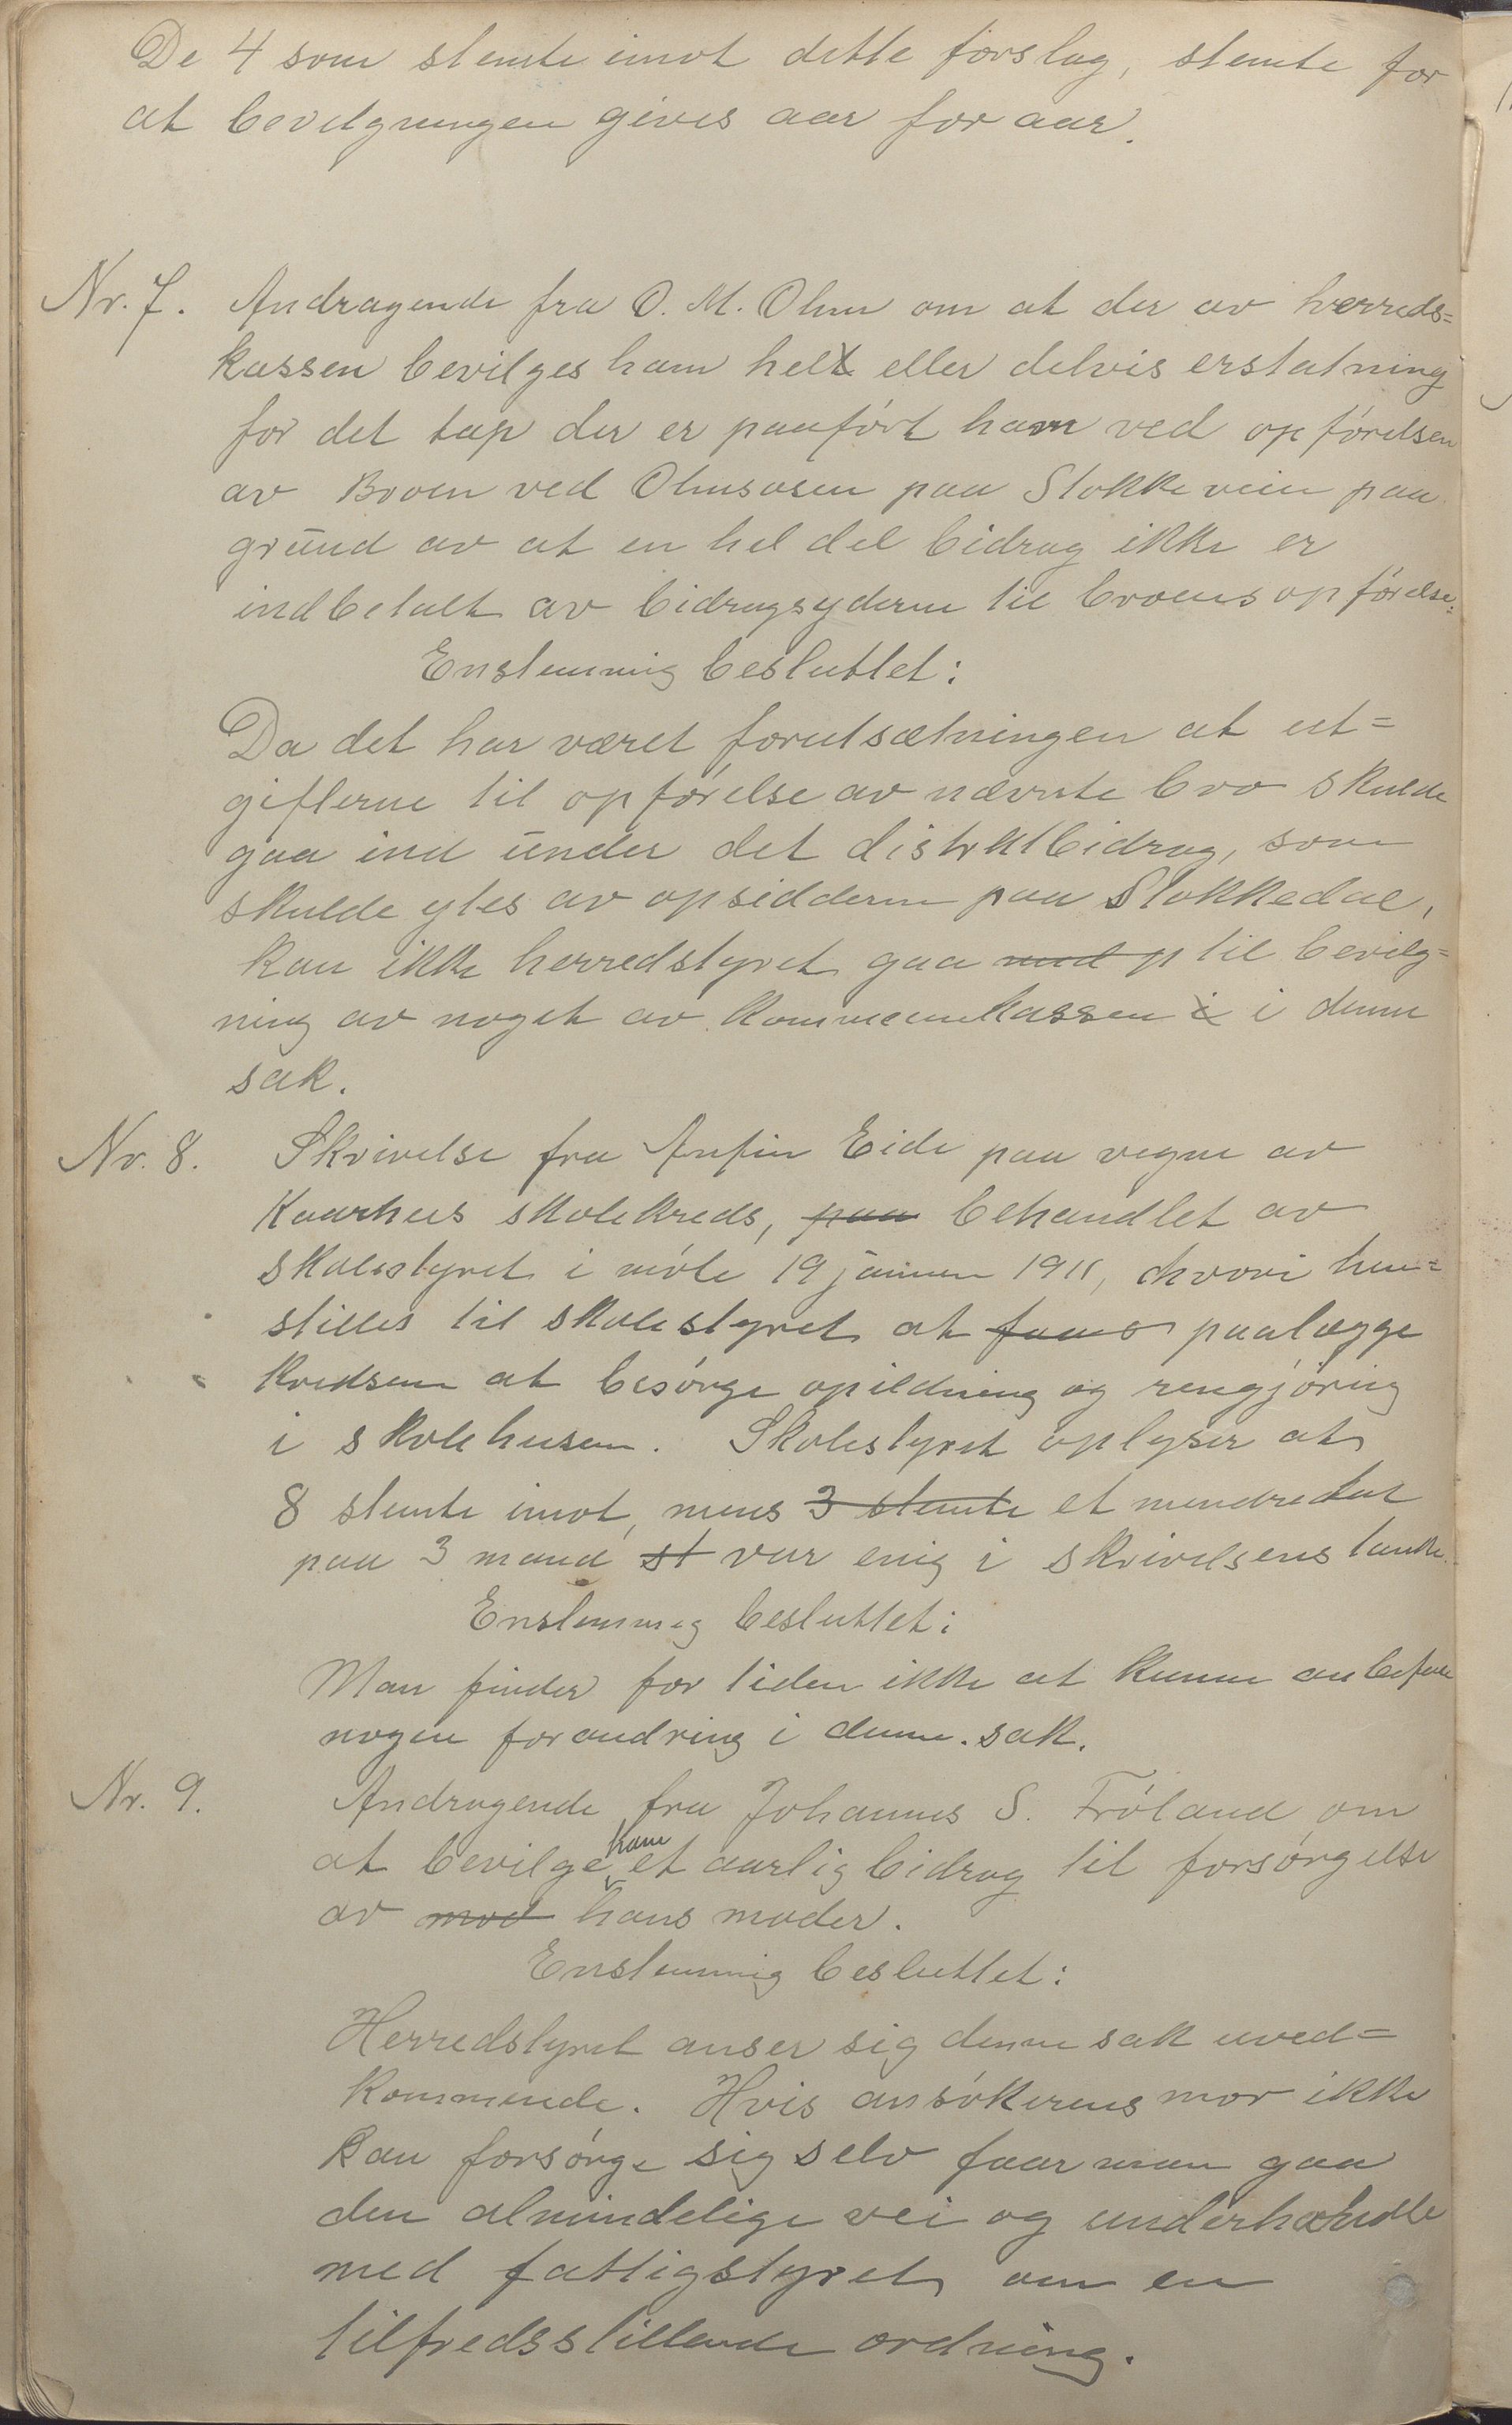 De 4 som stemte imot dette forslag, stemte for
at bevilgningen gives aar for aar.
Nr. 7. Andragende fra O. M. Ohm om at der av herreds=
kassen bevilges ham helt eller delvis erstatning
for det tap der er paaført ham ved opførelsen
av Broen ved Ohmsosen paa Stokkeveien paa
grund av at en hel del bidrag ikke er
indbetalt av bidragsyderne til broens opførelse.
Enstemmig besluttet:
Da det har været forutsætningen at ut=
gifterne til opførelse av nævnte bro skulde
gaa ind under det distriktbidrag, som
skulde ytes av opsidderne paa Stokkedal,
kan ikke herredstyret gaa med p til bevilg=
ning av noget av kommunekassen i i denne
sak.
Nr. 8. Skrivelse fra Anfin Eide paa vegne av
Kaarhus skolekreds, paa behandlet av
skolestyret i møte 19 januar 1911, hvori hen=
stilles til skolestyret at paalægge
kredsene at besørge opildning og rengjøring
i skolehusene. Skolestyret oplyser at
8 stemte imot, mens 3 stemte et mindretal
paa 3 mand st var enig i skrivelsens tanke.
Enstemmig besluttet:
Man finder for tiden ikke at kunne anbefale
nogen forandring i denne sak.
Nr. 9. Andragende fra Johannes S. Frøland om
at bevilge ham et aarlig bidrag til forsørgelse
av mod hans moder.
Enstemmig besluttet:
Herredstyret anser sig denne sak uved=
kommende. Hvis ansøkerens mor ikke
kan forsørge sig selv faar man gaa
den almindelige vei og underhandle
med fattigstyret om en
tilfredsstillende ordning.